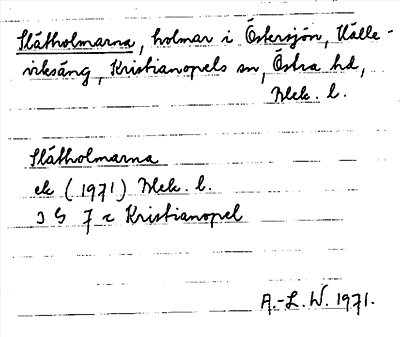 Slätholmarna, holmar i Östersjön, Välle-
viksäng, Kristianopels sn, Östra hd,
Blek. l.
Slätholmarna
ek (1971) Blek. l.
3 G 7 c Kristianopel
A.-L. W. 1971.